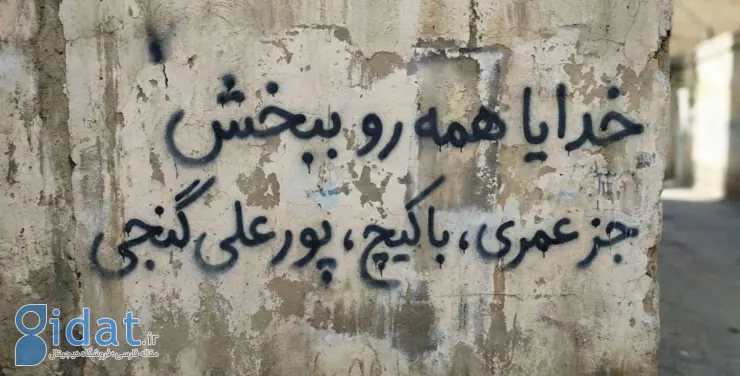 خدایا همه رو ببخش
جز عمری، باکیچ، پورعلی گنجی
gidat.ir
مقاله فارسی؛ فروشگاه دیجیتال